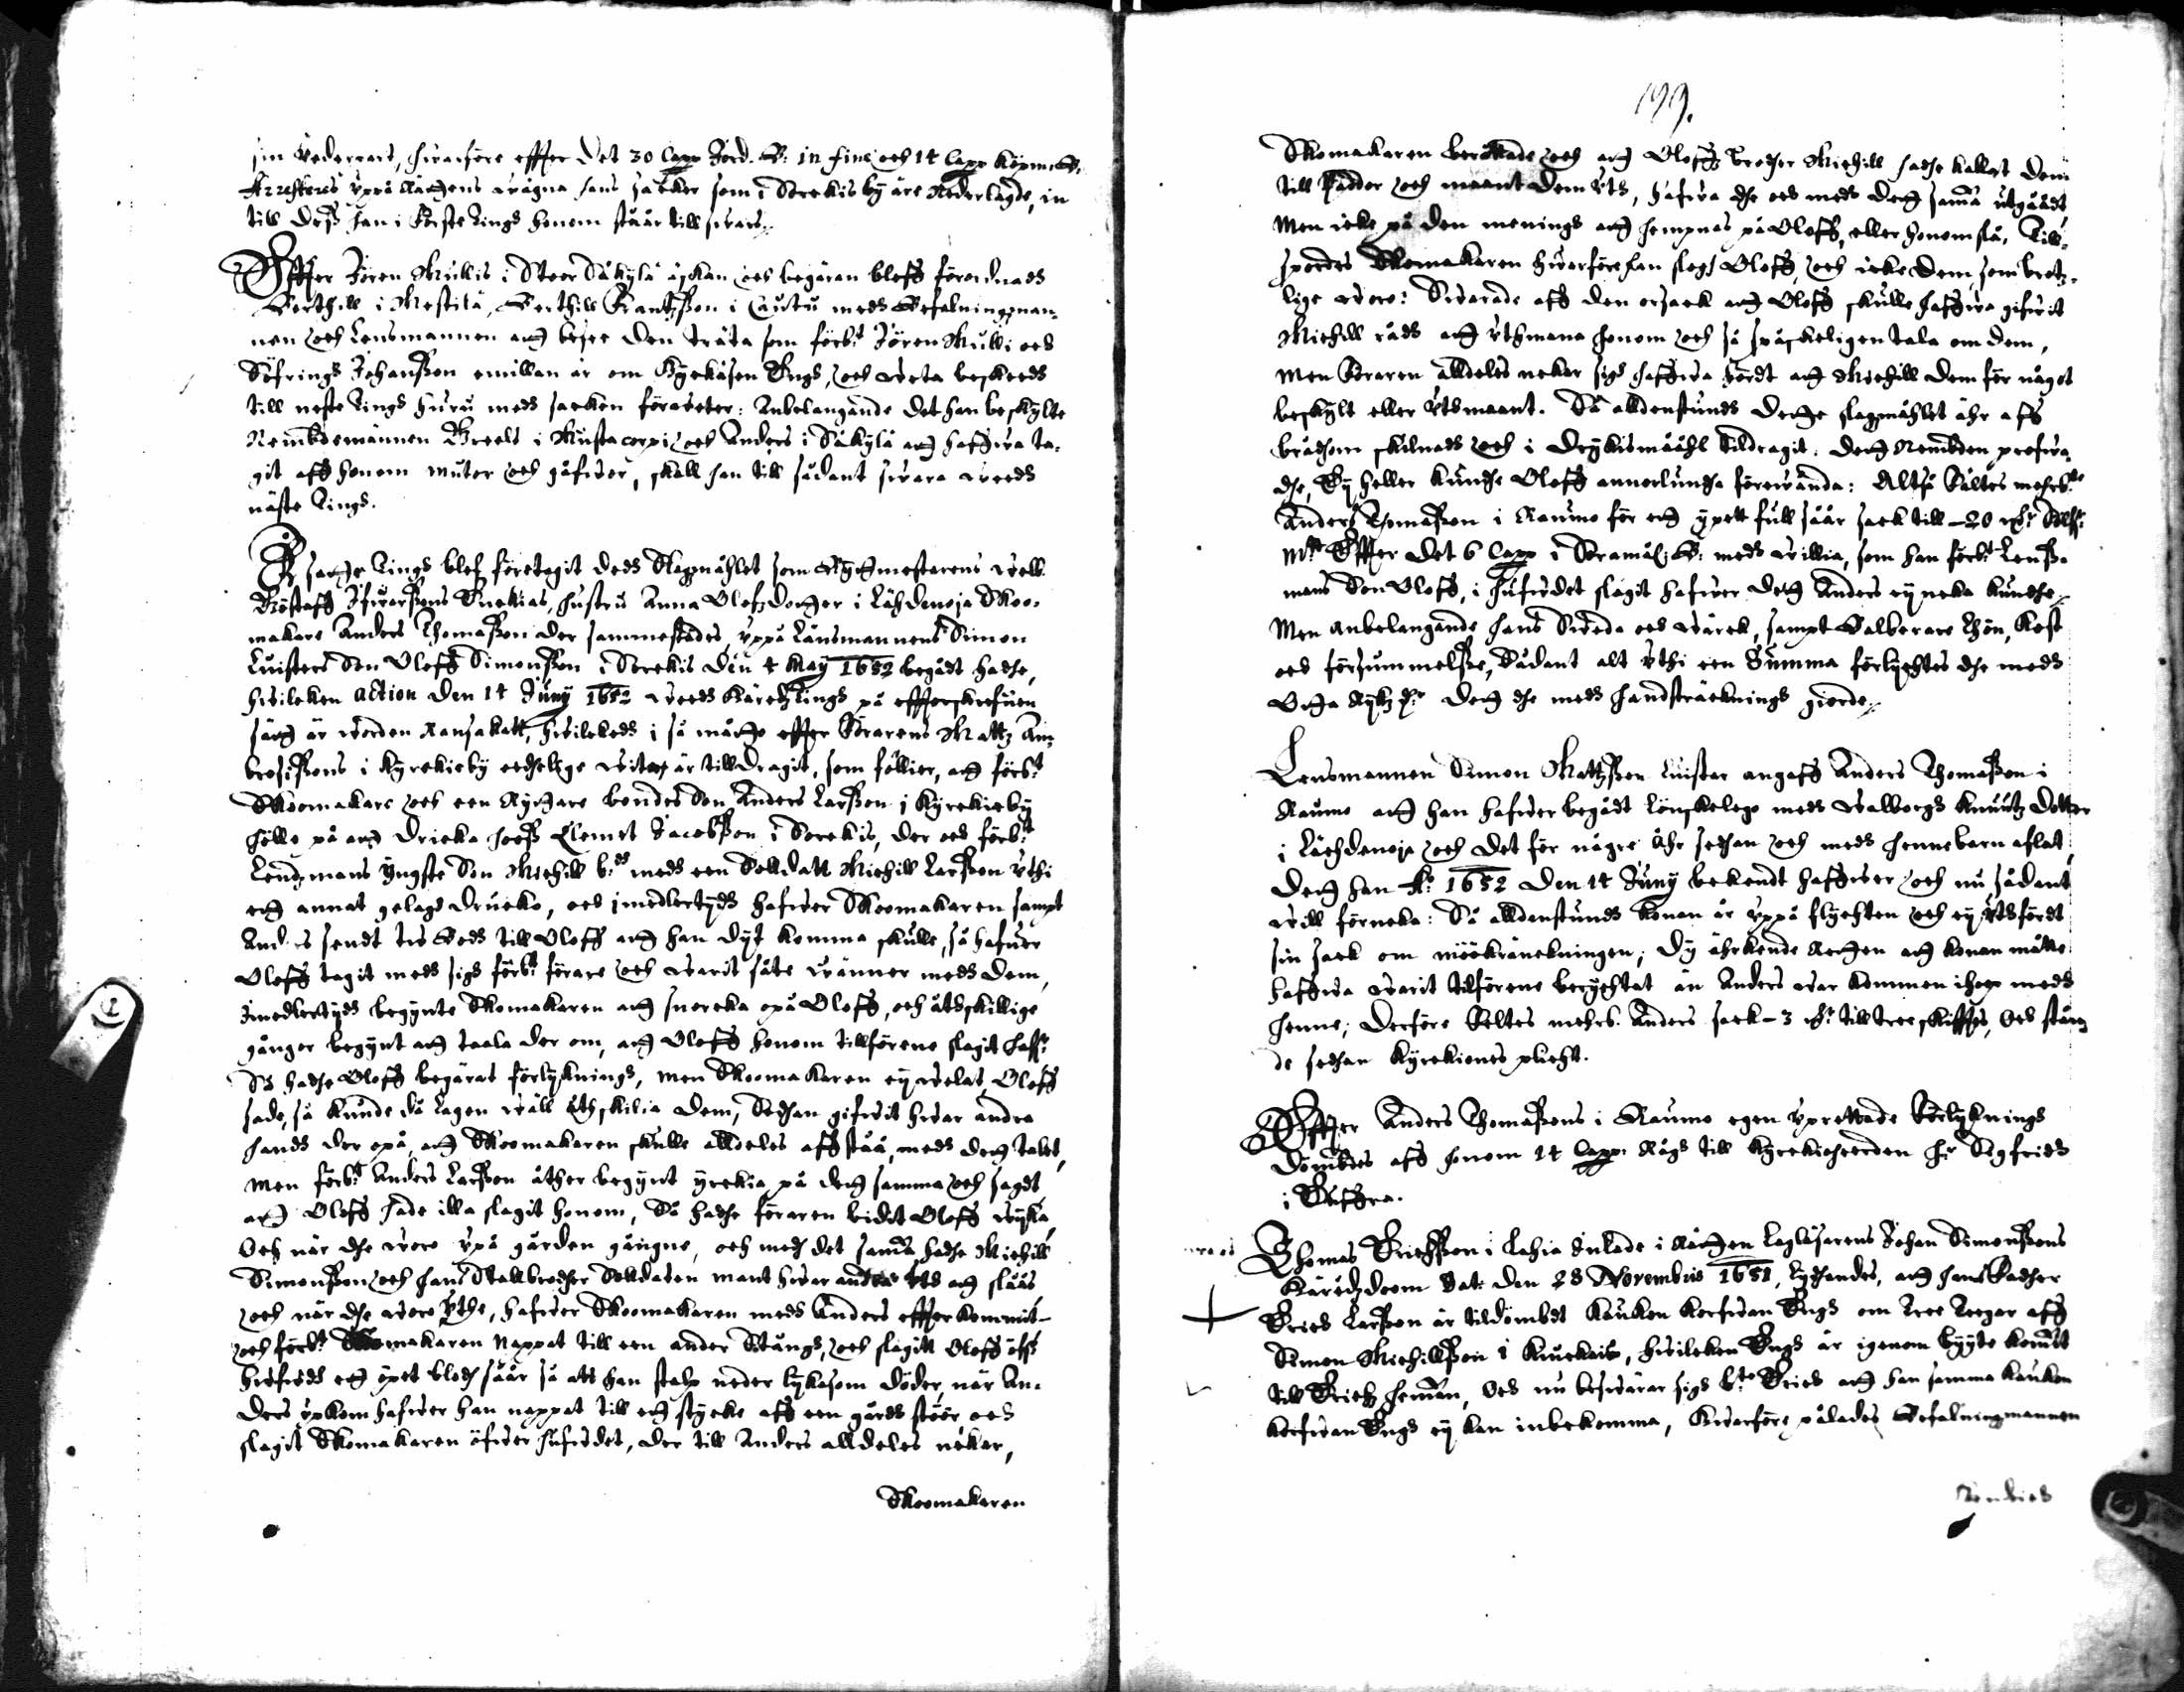 sin Vederpart, hwarföre effter det 30 Capp Jord. B: in fine och 14 Capp Köpm. B.
Arresteres uppå Rättens wägna hans saker som i Sorckis by äre Nederlagde, in
till dess han i Förste Tingh honom ståår till swars.
Effter Jören Mullis i Stoor Säkylä åskan och begäran bleff förordnadt
Berthill i Mestilä, Berthill Frantzßon i Cautu medh Befalningzman-
nen och Lensmannen att besee den träta som förb:te Jören Mulli och
Söfringh Johanßon emillan är om Kyrkåsen Engh, och weta beskeedh
till neste Tingh huru medh saken förweter: Anbelangande det han beskylte
Nembdemännen Greels i Mustacorpi och Anders i Säkylä att haffwa ta-
git aff honom mutor och gåfwor, skall han till sådant swara weedh
näste Tingh.
På samme Tingh bleff företagit dedh Slagzmåhlet som Ryttmestarens well:
Göstaff Ifwarßons Kneckias, hustru Anna Olofzdotter i Lähdenoja Skoo-
makare Anders Thomaßon der sammestädes, uppå Länsmannens Simon
Luisters Son Oloff Simonßon i Sorckis den 4 May 1652 begådt hadhe,
hwilcken action den 14 Juny 1652 weedh Häredz Tingh på effterskrefuen
sätt är worden Ransakatt, hwilckedh i så måtto effter Förarens Mattz Am-
brosißons i Kyrckieby eedhelige witne är tilldragit, som föllier, att förb:te
Skoomakare och een Ryttare bondes Son Anders Larßon i Kyrckieby
hölle på att dricka hooß Clemet Jacobßon i Sorckis, der och förb:te
Lendzmans yngste Son Michill b:de medh een Solldatt Michill Larßon uthi
ett annat gelagh drucko, och imedlertijdh hafwer Skoomakaren sampt
Anders sendt tw Bodh till Oloff att han dijt komma skulle, så hafwer
Oloff tagit medh sigh förb:te förare och warit såte wänner medh dem,
Imedlertijdh begynte Skomakaren att snorcka opå Oloff, och åtskillige
gånger begynt att taala der om, att Oloff honom tillförene slagit haff:r
Så hadhe Oloff begärat förlyknings, men Skoomakaren ey welat, Oloff
sade, så kunde då Lagen wäll åthskilia dem, Sedhan gifwit hwar andra
handh der opå, att Skoomakaren skulle alldeles affståå, medh dett talet,
Men förb:te Anders Larßon åther begynt yrckia på dett samma och sagdt
att Oloff hade illa slagit honom, Så hadhe föraren bidit Oloff wijka,
Och när dhe wore upå gården gångne, och medh det samma hadhe Michill
Simonßon och hans Stallbrodher Solldaten mant hwar andra uth att slåås,
och när dhe wore uthe, hafwer Skoomakaren medh Anders effterkommit
och förb:te Skomakaren Nappat till een ander Stångh, och slagitt Oloff öff:r
hufwudh ett öpet blodh såår så att han stalp neder lykasom döder, när An-
ders upkom hafwer han nappat till ett stycke aff een gärdz stöör och
slagit Skomakaren öfwer hufwdet, der till Anders alldeles nekar,
Skoomakaren
199.
Skomakaren berättade och att Oloffz brodher Michill hadhe kallat dem
till Paddor och maant dem uth, hafwa dhe och medh dett samma utgåådt
Men icke på den menings att hempnas på Oloff, eller honom slå, Till-
spordes Skomakaren hwarföre han slogh Oloff, och icke dem, som brotz-
lige wore: Swarade aff den orsack att Oloff skulle haffwa gifwit
Michill rådh att uthmana honom och så späskeligen tala om dem,
Men Föraren alldeles nekar sigh haffwa hördt att Michill dem för något
beskylt eller uthmaant. Så alldenstundh dette slagzmåhlet ähr aff
brådhom skilnadh och i dryckismåhl tildragit, dett Nembden profwa-
dhe, Ey heller kundhe Oloff annorlundha förewända: Altså Fältes mehrb:te
Anders Thomaßon i Raumo för ett öpett full såår sack till 20 Sölff:r
M:k Effter det 6 Capp i Såramåhl: B: medh willia, som han förb:te Lenß-
mans Son Oloff, i hufwdet slagit hafwer dett Anders ey neka kundhe.
Men anbelangande hans Sweda och wärck, sampt Balberare Löhn, Kost
och försummelße, Sådant alt uthi een Summa förlychtes dhe medh
Otta Rykz D:r dett dhe medh handsträcknings giorde.
Lensmannen Simon Mattzßon Luistar angaff Anders Thomaßon i
Raumo att han hafwer begådt lönskelege medh Walborgh Knuutz dotter
i Lähdenoja och det för någre åhr sedhan och medh henne barn aflat,
dett han A:o 1652 den 14 Juny bekendt haffwer och nu sådant
will förneka: Så alldenstundh konan är uppå flychten och ey uthfördt
sin sack om möökränckningen, dy ährkende Retten att konan måtte
haffwa warit tilförene berychtat än Anders war kommen ihop medh
henne, derföre feltes mehrb. Anders sack 3 till treeskiffte, Och stån-
de sedhan kyrckiones plicht.
Effter Anders Thomaßons i Raumo egen uprettade Förlyknings
dömbdes aff honom 14 Capp. Rågh till Kyrckioherden H:r Sigfridh
i Euffra.
Thomas Erichßon i Lahia Inlade i Rätten Laglösarens Johan Simonßons
Häredzdoom Dat: den 28 Novembris 1651, lydhandes, att hans Fadher
Erich Larßon är tildömbdt Kauken Korfwan Engh om Tree Tegar aff
Simon Michillßon i Kiuckais, hwilcken Engh är igenom byyte komit
till Erichz hemän, Och nu beswärar sigh b:te Erich att han samma Kauken
korfwan Engh ey kan inbekomma, hwarföre pålades Befalningzmannen